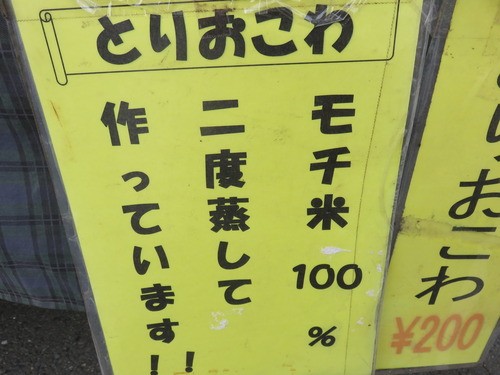 とりおこわ
モチ米100%
二度蒸して
作っています!!
おこわ
¥200